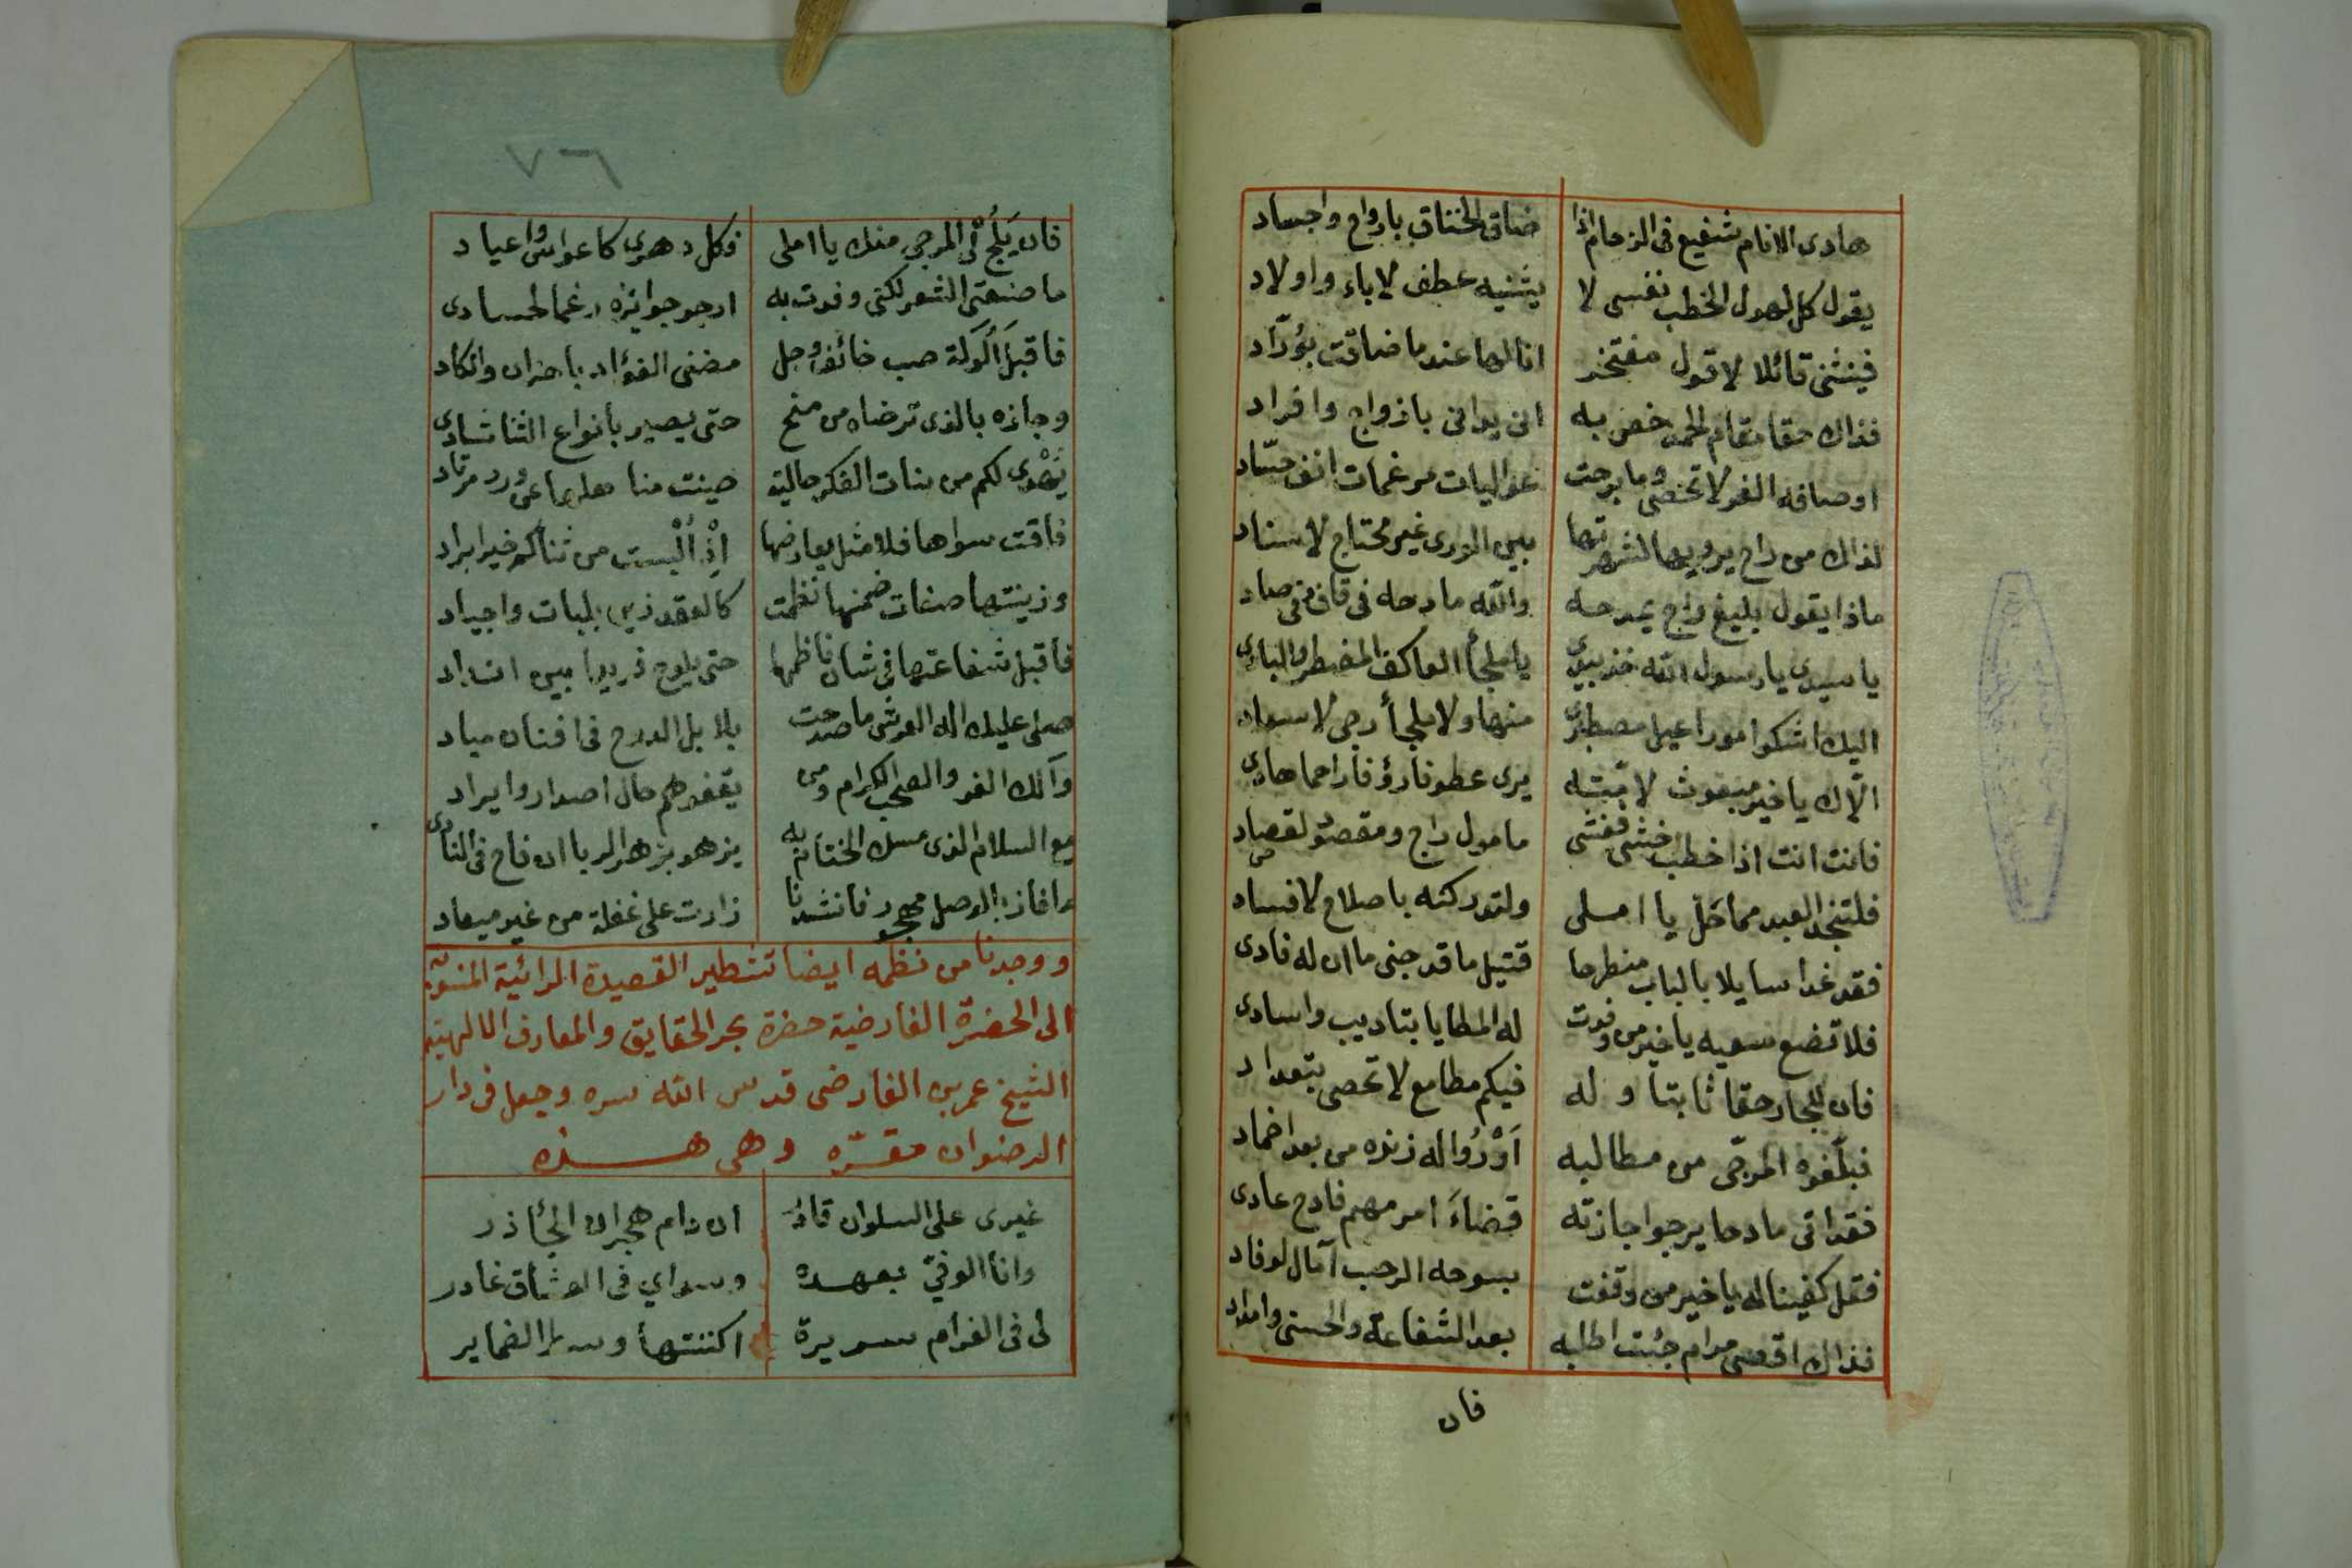 هادى الانام شفيع فى الزحام اذا ضاق الخناق بارواح واجساد
يقول كل لهول الخطب نفسى لا يثنيه عطف لاباء واولاد
فينثنى قائلا لا قول مفتخر انا لها عند ما ضاقت بورّاد
فذاك حقا مقام الحمد خص به انى يدانى بازواج وافراد
اوصافه الغر لا تحصى وما برحت غواليات مرغمات انف حسّاد
لذاك من راح يرويها لشهرتها بين الورى غير محتاج لاسناد
ماذا يقول بليغ راح يمدحه والله مادحه فى قاف فى صاد
يا سيدى يا رسول الله خذ بيدى يا ملجأ العاكف المضطر والبادى
اليك اشكوا امورا عيل مصطبرى منها ولا ملجأ ارجى لاسعاد
الّاك يا خير مبعوث لامّته يرى عطوفا رؤفا راحما هادى
فانت انت اذا خطب خشى فغشى مامول راج ومقصود لقصاد
فلتنجد العبد مما حلّ يا املى ولتدركنه باصلاح لافساد
فقد غدا سايلا بالباب منطرحا قتيل ما قد جنى ما ان له فادى
فلا تضع سعيه يا خير من وفدت له المطايا بتاديب واسادى
فان للجار حقا ثابتا وله فيكم مطامع لا تحصى بتعداد
فبلّغوه المرجّى من مطالبه اَوْرُوا له زنده من بعد اخماد
فقد اتى مادحا يرجوا جازته قضاءَ امر مهم فادح عادى
فقل كفينا له يا خير من وقفت بسوحه الرحب آمال لوفاد
فذاك اقصى مرام جئت اطلبه بعد الشفاعة والحسنى وامداد
فان
٧٦
فان يَلُج لى المرجى منك يا املى فكل دهرى كاعراس واعياد
ما صنعتى الشعر لكنى وفدت به ارجو جوائزه رغما لحسادى
فاقبل اَلُوكَة صب خائف وجل مضنى الفؤاد باحزان وانكاد
وجازه بالذى ترضاه من منح حتى يصير بانواع الثنا شادى
يُهْدى لكم من بنات الفكر حالية صينت مناهلها عن ورد مرتاد
فاقت سواها فلا مثل يعارضها اِذْ اُلْبست من ثناكم خير ابراد
وزينتها صفات ضمنها نظمت كالعقد زين بلبات واجياد
فاقبل شفاعتها فى شان ناظمها حتى يلوح فريدا بين انداد
صلى عليك اله العرش ما صدحت بلابل الدوح فى افنان مياد
وآلك الغر والصحب الكرام ومن يقفوهم حال اصدار وايراد
مع السلام الذى مسك الختام به يزهو بزهر الربا ان فاح فى النادى
ما فاز بالوصل مهجور فانشدنا زارت على غفلة من غير ميعاد
ووجدنا من نظمه ايضا تشطير القصيدة الرائية المنسوبة
الى الحضرة الفارضية حضرة بحر الحقايق والمعارف الالهية
الشيخ عمر بن الفارض قدس الله سره وجعل فى دار
الرضوان مقرّه وهى هذه
غيرى على السلوان قادر ان دام هجران الجأذر
وانا الوفىّ بعهده وسواي فى العشاق غادر
لى فى الغرام سريرة اكننتها وسط الضماير